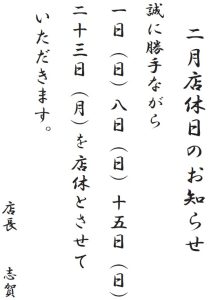 二月店休日のお知らせ
誠に勝手ながら
一日（日）八日（日）十五日（日）
二十三日（月）を店休とさせて
いただきます。
店長　志賀